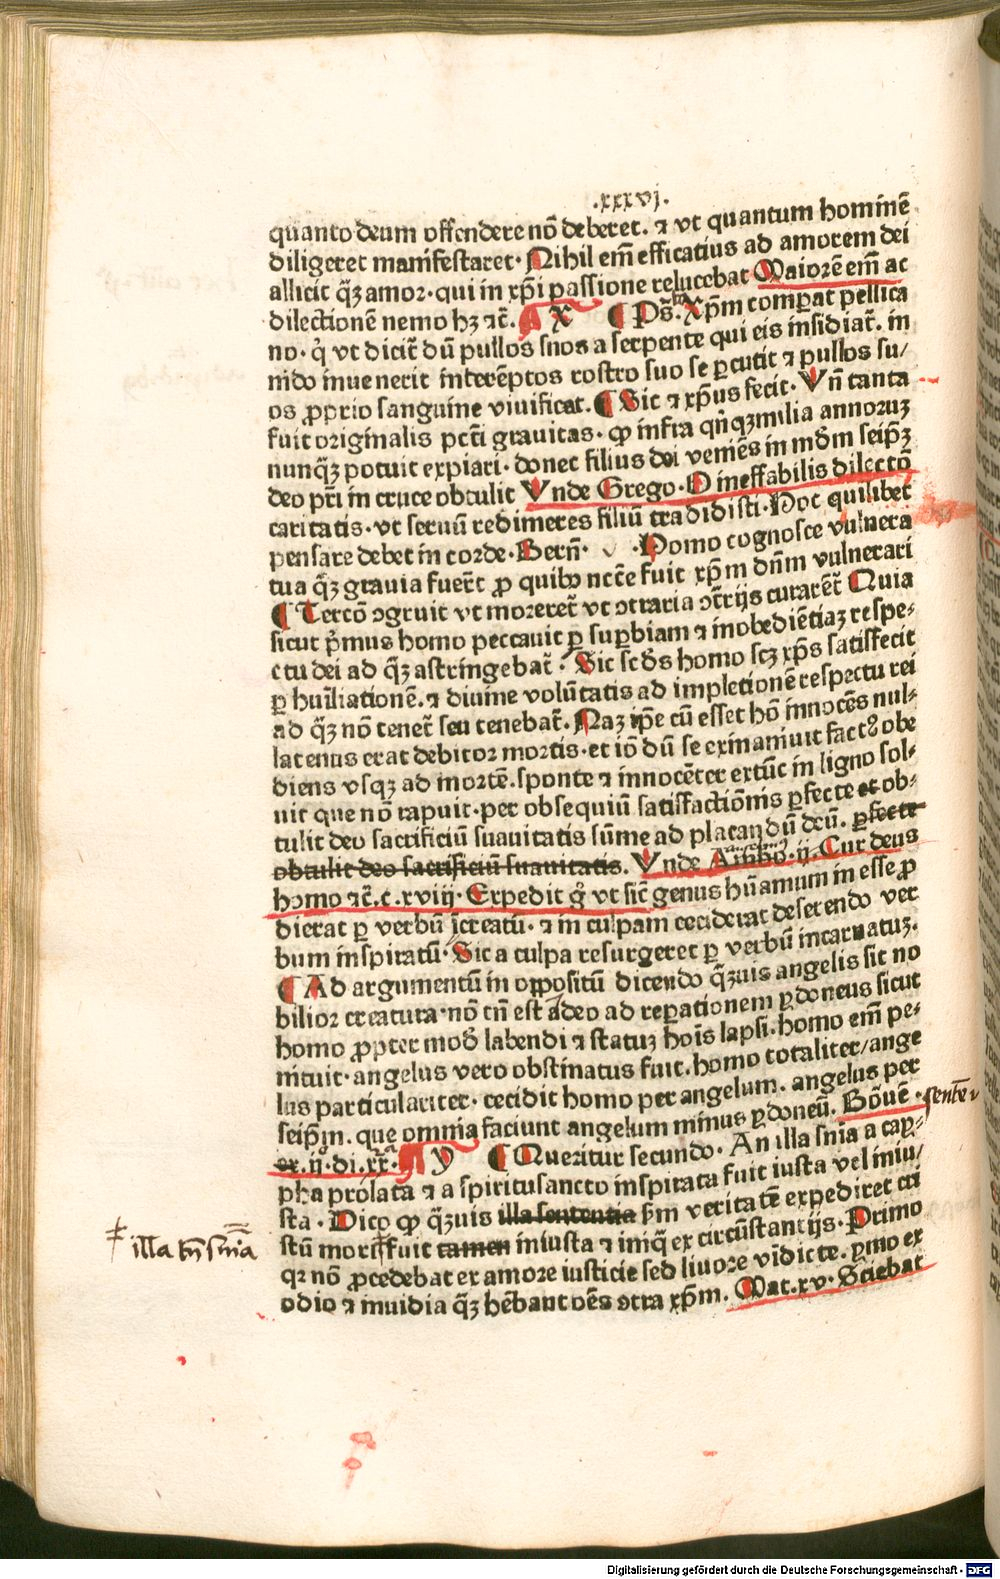 .xxxvj.
quanto deum offendere nō deberet. ⁊ vt quantum hominē
diligeret manifestaret. Nihil em̄ efficatius ad amorem dei
allicit q̄ꝫ amor. qui in xp̄i passione relucebat Maiorē em̄ ac
dilectionē nemo hꝫ ⁊c̄. X ¶ Ps̄. Xp̄m comparat pellica
no. q̇ vt dicit̄ dū pullos suos a serpente qui eis insidiat̄. in
nido inuenerit interēptos rostro suo se ꝑcutit ⁊ pullos su/
os ꝓprio sanguine viuificat. ¶ Sic ⁊ xp̄us fecit. Vn̄ tanta
fuit originalis pct̄i grauitas. ꝙ infra qn̄qꝫ milia annoruꝫ
nunqꝫ potuit expiari. donec filius dei veniēs in mūdm seip̄ꝫ
deo pr̄i in cruce obtulit Vnde Grego. O ineffabilis dilectō
caritatis. vt seruū redimeres filiū tradidisti. Hoc quilibet
pensare debet in corde. Bern̄. Homo cognosce vulnera
tua q̄ꝫ grauia fuer̄t ꝓ quibꝰ ncc̄e fuit xp̄m dn̄m vulnerari
¶ Tercō ꝯgruit vt moreret̄ vt ꝯtraria ꝯtr̄ijs curarēt̄ Quia
sicut p̄mus homo peccauit ꝑ suꝑbiam ⁊ inobediētiaꝫ respe-
ctu dei ad q̄ꝫ astringebat̄. Sic scd̄s homo scꝫ xp̄s satisfecit
ꝑ huīliationē. ⁊ diuine volūtatis ad impletionē respectu rei
ad q̄ꝫ nō tenet̄ seu tenebat̄. Naꝫ ip̄e cū esset hō innocēs nul-
latenus erat debitor mortis. et iō dū se exinaniuit factꝰ obe
diens vsqꝫ ad mortē. sponte ⁊ innocēter extūc in ligno sol-
uit que nō rapuit. per obsequiū satisfactiōnis ꝑfecte et ob-
tulit deo sacrificiū suauitatis sūme ad placandū deū. ꝑfecte
obtulit deo sacrificiū suauitatis. Vnde Ambꝰ. ij. Cur deus
homo ⁊c̄. c. xviij. Expedit g̊ vt sic̄ genus hūanum in esse ꝓ
dierat ꝑ verbū īcreatū. ⁊ in culpam ceciderat deserendo ver
bum inspiratū. Sic a culpa resurgeret ꝑ verbū incarnatuꝫ.
¶ Ad argumentū in oppositū dicendo q̄ꝫuis angelis sit no
bilior creatura. nō tn̄ est adeo ad reparationem ꝑdoneus sicut
homo ꝓpter mod̄ labendi ⁊ statuꝫ hoīs lapsi. homo em̄ pe-
nituit. angelus vero obstinatus fuit. homo totaliter/ange
lus particulariter. cecidit homo per angelum. angelus per
seip̄m. que omnia faciunt angelum minus ꝑdoneū. Bōuē. sentē
ex. ij. di. xx. y ¶ Queritur secundo. An illa sn̄ia a cay-
pha prolata ⁊ a spiritusancto inspirata fuit iusta vel iniu/
sta. Dico ꝙ q̄ꝫuis illa sententia sm̄ veritatē expediret cri
illa tn̄ sn̄ia
stū mori fuit tamen iniusta ⁊ iniq̄ ex circūstantijs. Primo
qꝛ nō ꝓcedebat ex amore iusticie sed liuore vīdicte. pͥmo ex
odio ⁊ inuidia q̄ꝫ hēbant oēs ꝯtra xp̄m. Mat. xv. Sciebat
Digitalisierung gefördert durch die Deutsche Forschungsgemeinschaft - DFG